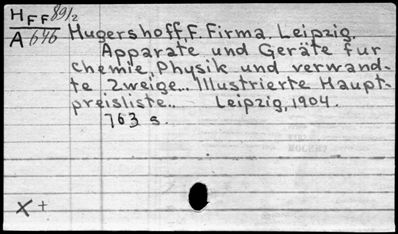 HFF 89/2
A 646
Hugershoff, F. Firma. Leipzig.
Apparate und Geräte fur
chemie, Physik und verwand-
te Zweige... Illustrierte Haupt-
preisliste.. Leipzig, 1904.
763 s.
X +